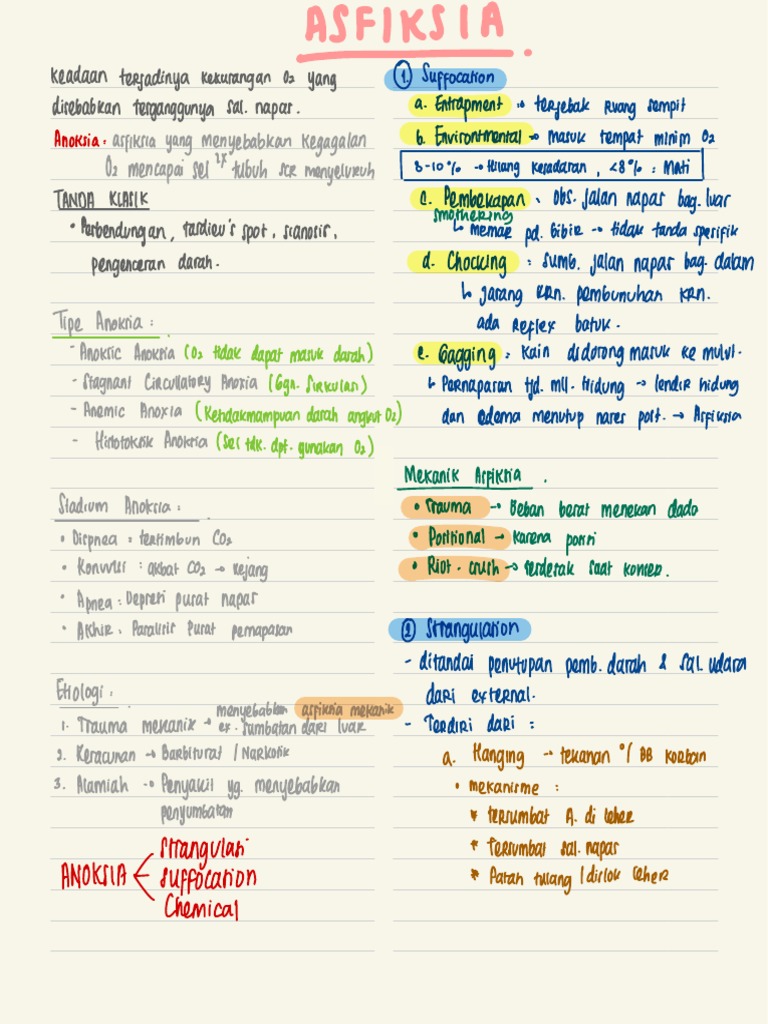 ASFIKSIA.
keadaan terjadinya kekurangan O2 yang
disebabkan terganggunya sal. napas.
Anoksia : asfiksia yang menyebabkan kegagalan
O2 mencapai sel2x tubuh scr menyeluruh
TANDA KLASIK
• Perbendungan, tardieu's spot, sianosis,
pengenceran darah.
Tipe Anoksia :
- Anoksic Anoksia (O2 tidak dapat masuk darah)
- Stagnant Circullatory Anoxia (Ggn. Sirkulasi)
- Anemic Anoxia (Ketidakmampuan darah angkut O2)
- Histotoksik Anoksia (Sel tdk. dpt. gunakan O2)
Stadium Anoksia :
• Dispnea : tertimbun CO2
• Konvulsi : akibat CO2 → kejang
• Apnea : Depresi pusat napas
• Akhir : Paralisis Pusat pernapasan
Etiologi :
1. Trauma mekanik → menyebabkan asfiksia mekanik
ex. sumbatan dari luar
2. Keracunan → Barbiturat / Narkotik
3. Alamiah → Penyakit yg. menyebabkan
penyumbatan
ANOKSIA
Strangulasi
Suffocation
Chemical
1. Suffocation
a. Entrapment : terjebak ruang sempit
b. Environmental → masuk tempat minim O2
8-10% → Hilang kesadaran, <8% : Mati
c. Pembekapan : obs. jalan napas bag. luar
smothering
↳ memar pd. bibir → tidak tanda spesifik
d. Chocking : sumb. jalan napas bag. dalam
↳ jarang krn. pembunuhan krn.
ada reflex batuk.
e. Gagging : kain didorong masuk ke mulut.
↳ Pernapasan tjd. mll. Hidung → lendir hidung
dan edema menutup nares post. → Asfiksia
Mekanik Asfiksia .
• Trauma → Beban berat menekan dada
• Positional → karena posisi
• Riot - crush → terdesak saat konser.
2 Strangulation
- ditandai penutupan pemb. darah & sal. udara
dari external.
- Terdiri dari :
a. Hanging → tekanan o/ BB korban
• mekanisme :
* tersumbat A. di leher
* Tersumbat sal. napas
* Patah tulang / dislok leher